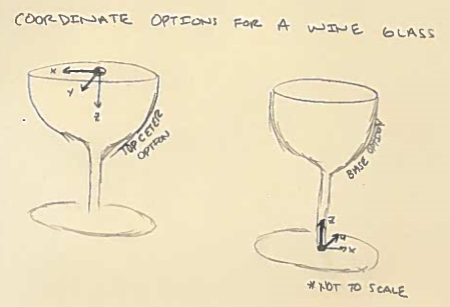 COORDINATE OPTIONS FOR A WINE GLASS
X
Y
Z
TOP CETER
OPTION
BASE OPTION
Z
Y
X
*NOT TO SCALE